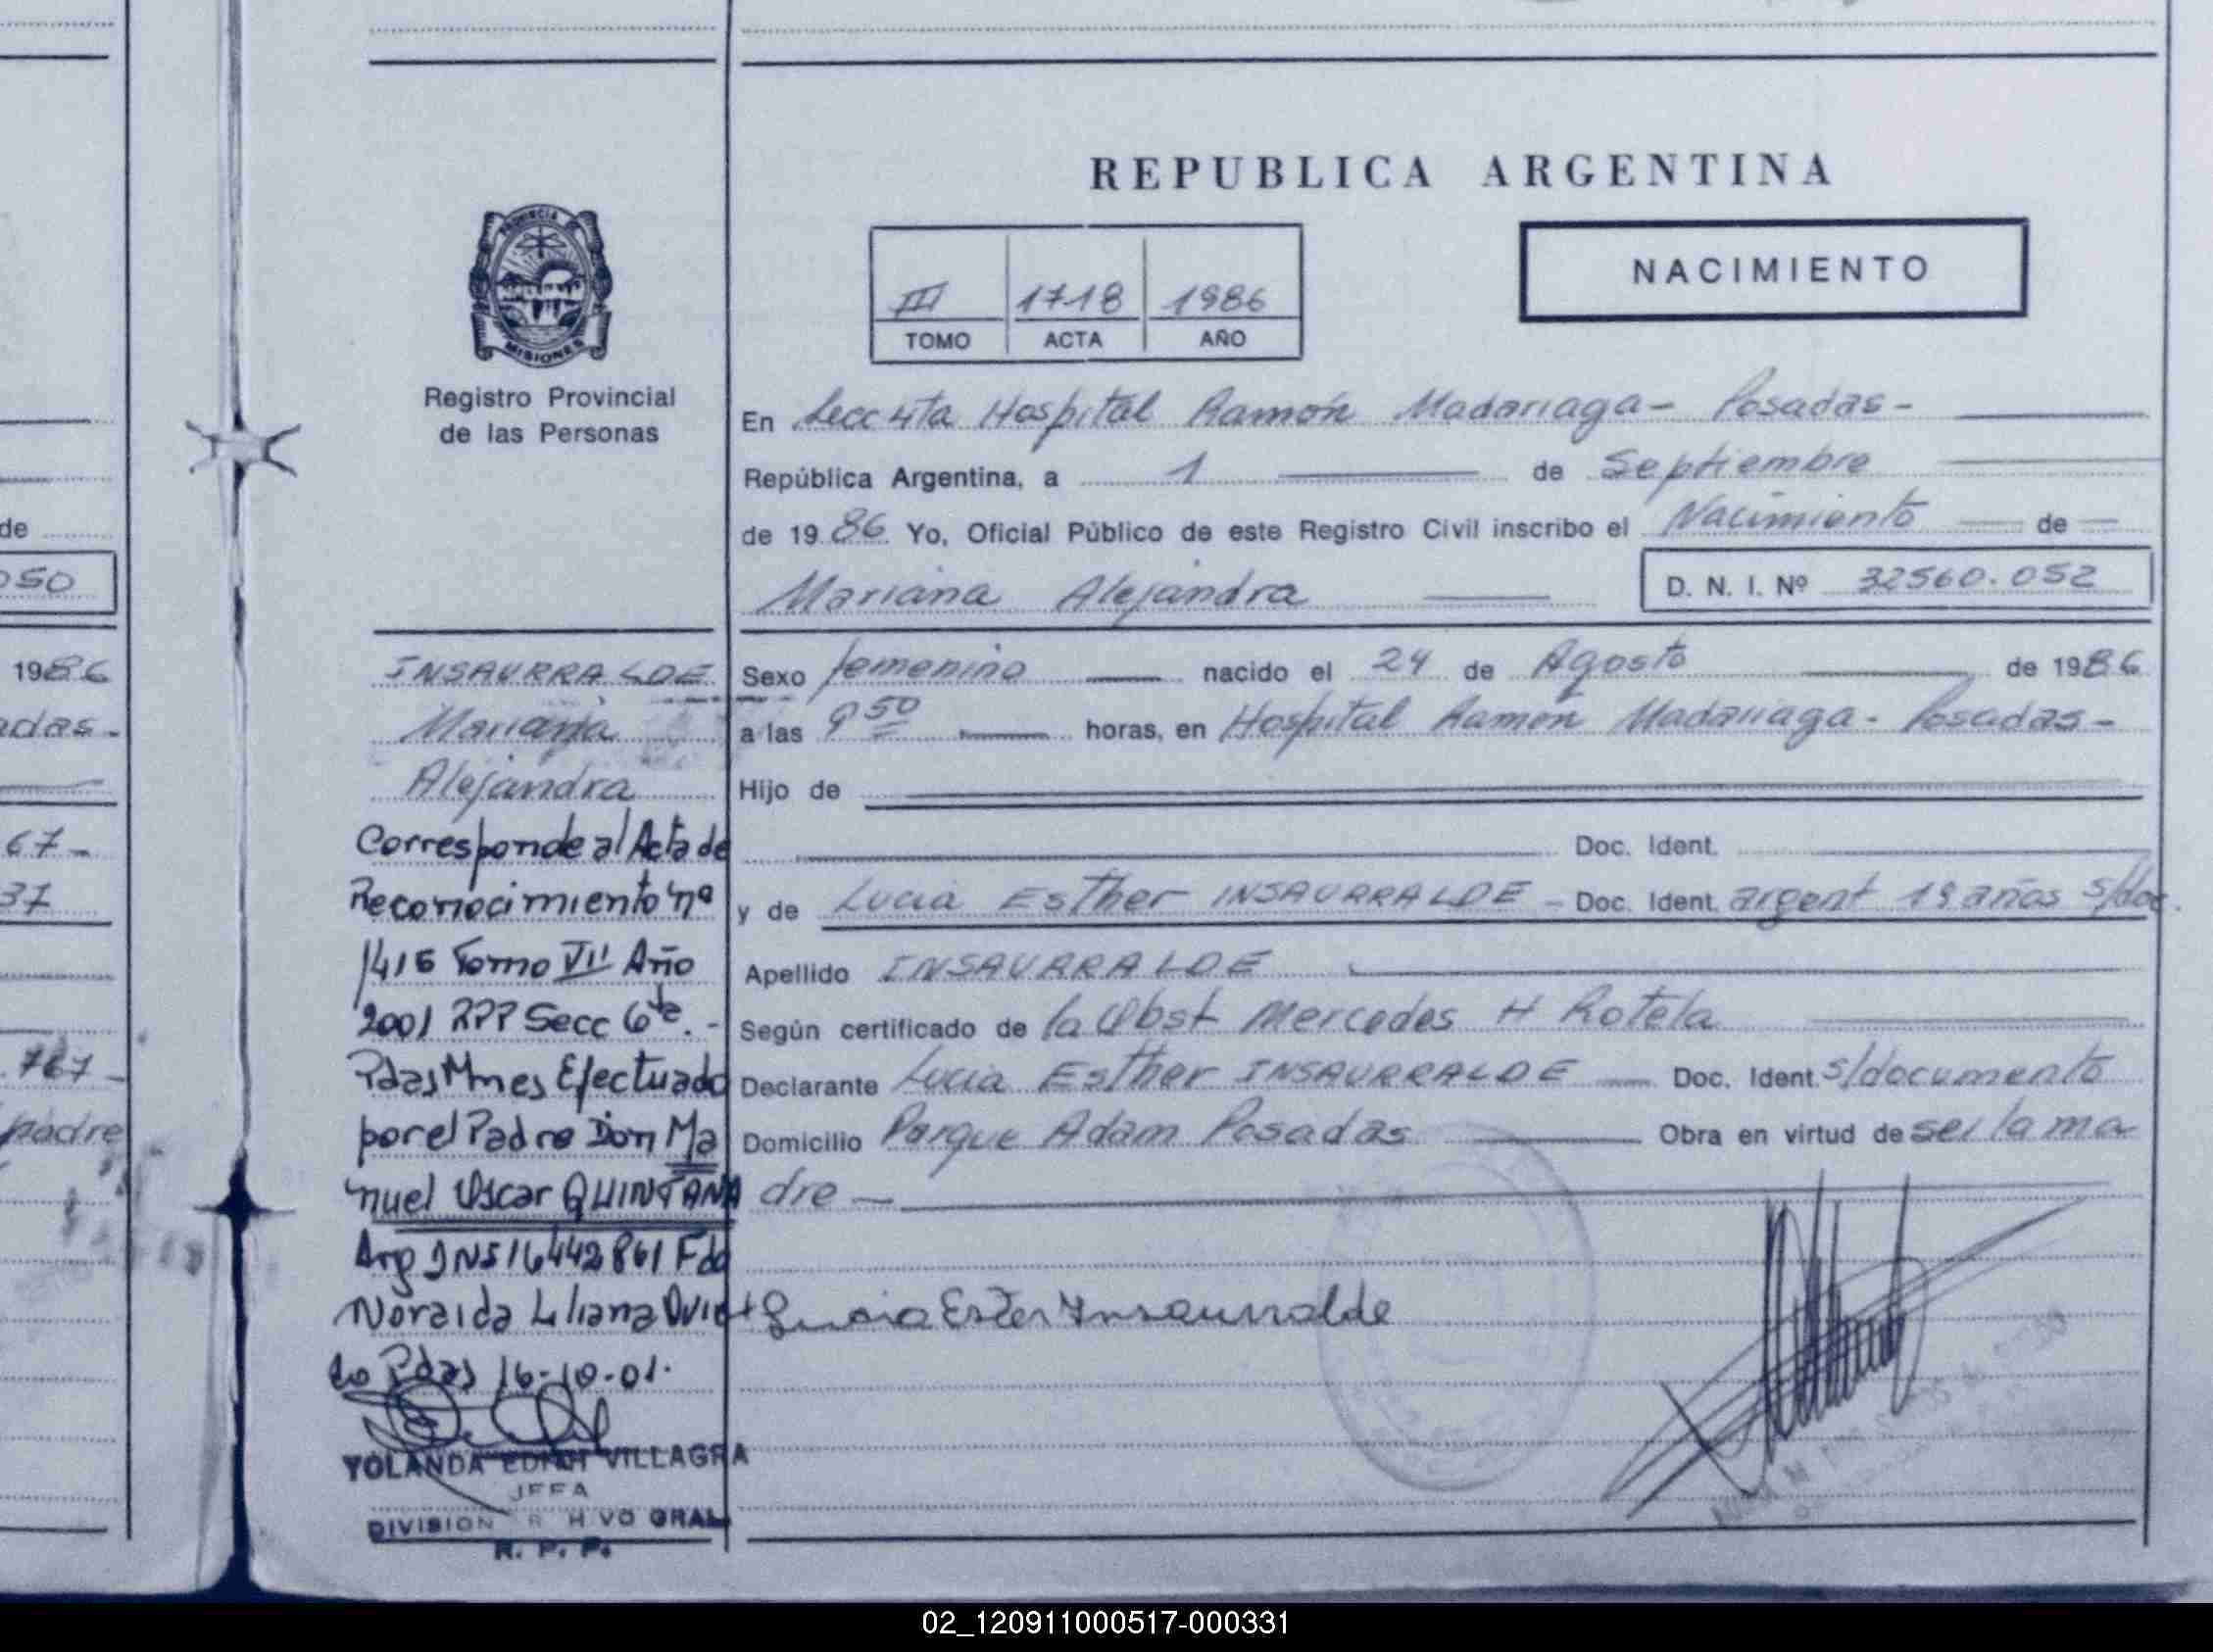 de
050
1986
adas-
67-
37
767-
padre
PROVINCIA
MISIONES
Registro Provincial
de las Personas
INSAURRALDE
Mariana
Alejandra
Corresponde al Acta de
Reconocimiento nº
1416 Tomo VII Año
2001 RPP Secc 6ta.-
Pdas Mnes Efectuado
por el Padre Don Ma
nuel Oscar QUINTANA
Arg DNI 16442861 Fdo
Noraida Liliana Ovied
do Pdas 16-10-01.
YOLANDA EDITH VILLAGRA
JEFA
DIVISION ARCHIVO GRAL
R. P. P.
REPUBLICA ARGENTINA
NACIMIENTO
III 1718 1986
TOMO ACTA AÑO
En Secc 4ta Hospital Ramón Madariaga- Posadas-
República Argentina, a 1 de Septiembre
de 1986 Yo, Oficial Público de este Registro Civil inscribo el Nacimiento de
Mariana Alejandra D. N. I. Nº 32560.052
Sexo femenino nacido el 24 de Agosto de 1986
a las 9 50 horas, en Hospital Ramón Madariaga- Posadas-
Hijo de
Doc. Ident.
y de Lucia Esther INSAURRALDE - Doc. Ident. argent 19 años s/doc.
Apellido INSAURRALDE
Según certificado de la Obst Mercedes H Rotela
Declarante Lucia Esther INSAURRALDE Doc. Ident. s/documento
Domicilio Parque Adam Posadas Obra en virtud de ser la ma
dre
Lucia Ester Insaurralde
02_120911000517-000331